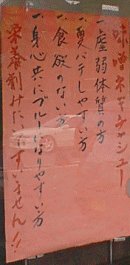 味噌ネギチャシュー
一、虚弱体質の方
一、夏バテしやすい方
一、食欲のない方
一、身心共にブルーになりやすい方
栄養剤みたいですみません!!